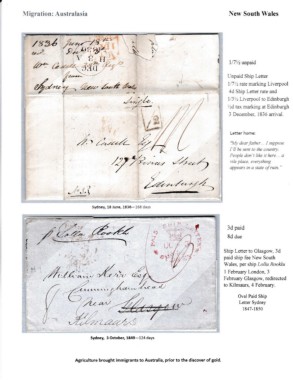 Migration: Australasia
New South Wales
1836 June 18th
Sydney New South Wales
Single
Wm Cassels Esq
127 Princes Street
Edinburgh
Sydney, 18 June, 1836 – 168 days
1/7½ unpaid
Unpaid Ship Letter
1/7½ rate marking Liverpool
4d Ship Letter rate and
1/1½ Liverpool to Edinburgh
½d tax marking at Edinburgh
3 December, 1836 arrival.
Letter home
"My dear father... I suppose
I'll be sent to the country.
People don't like it here .. a
vile place, everything
appears in a state of ruin."
p Lolla Rookh
William Esq
Cunninghamhead
near Glasgow
Kilmaurs
Sydney, 3 October, 1849 – 123 days
3d paid
8d due
Ship Letter to Glasgow, 3d
paid ship fee New South
Wales, per ship Lolla Rookhs
1 February London, 3
February Glasgow, redirected
to Kilmaurs, 4 February.
Oval Paid Ship
Letter Sydney
1847-1850
Agriculture brought immigrants to Australia, prior to the discover of gold.